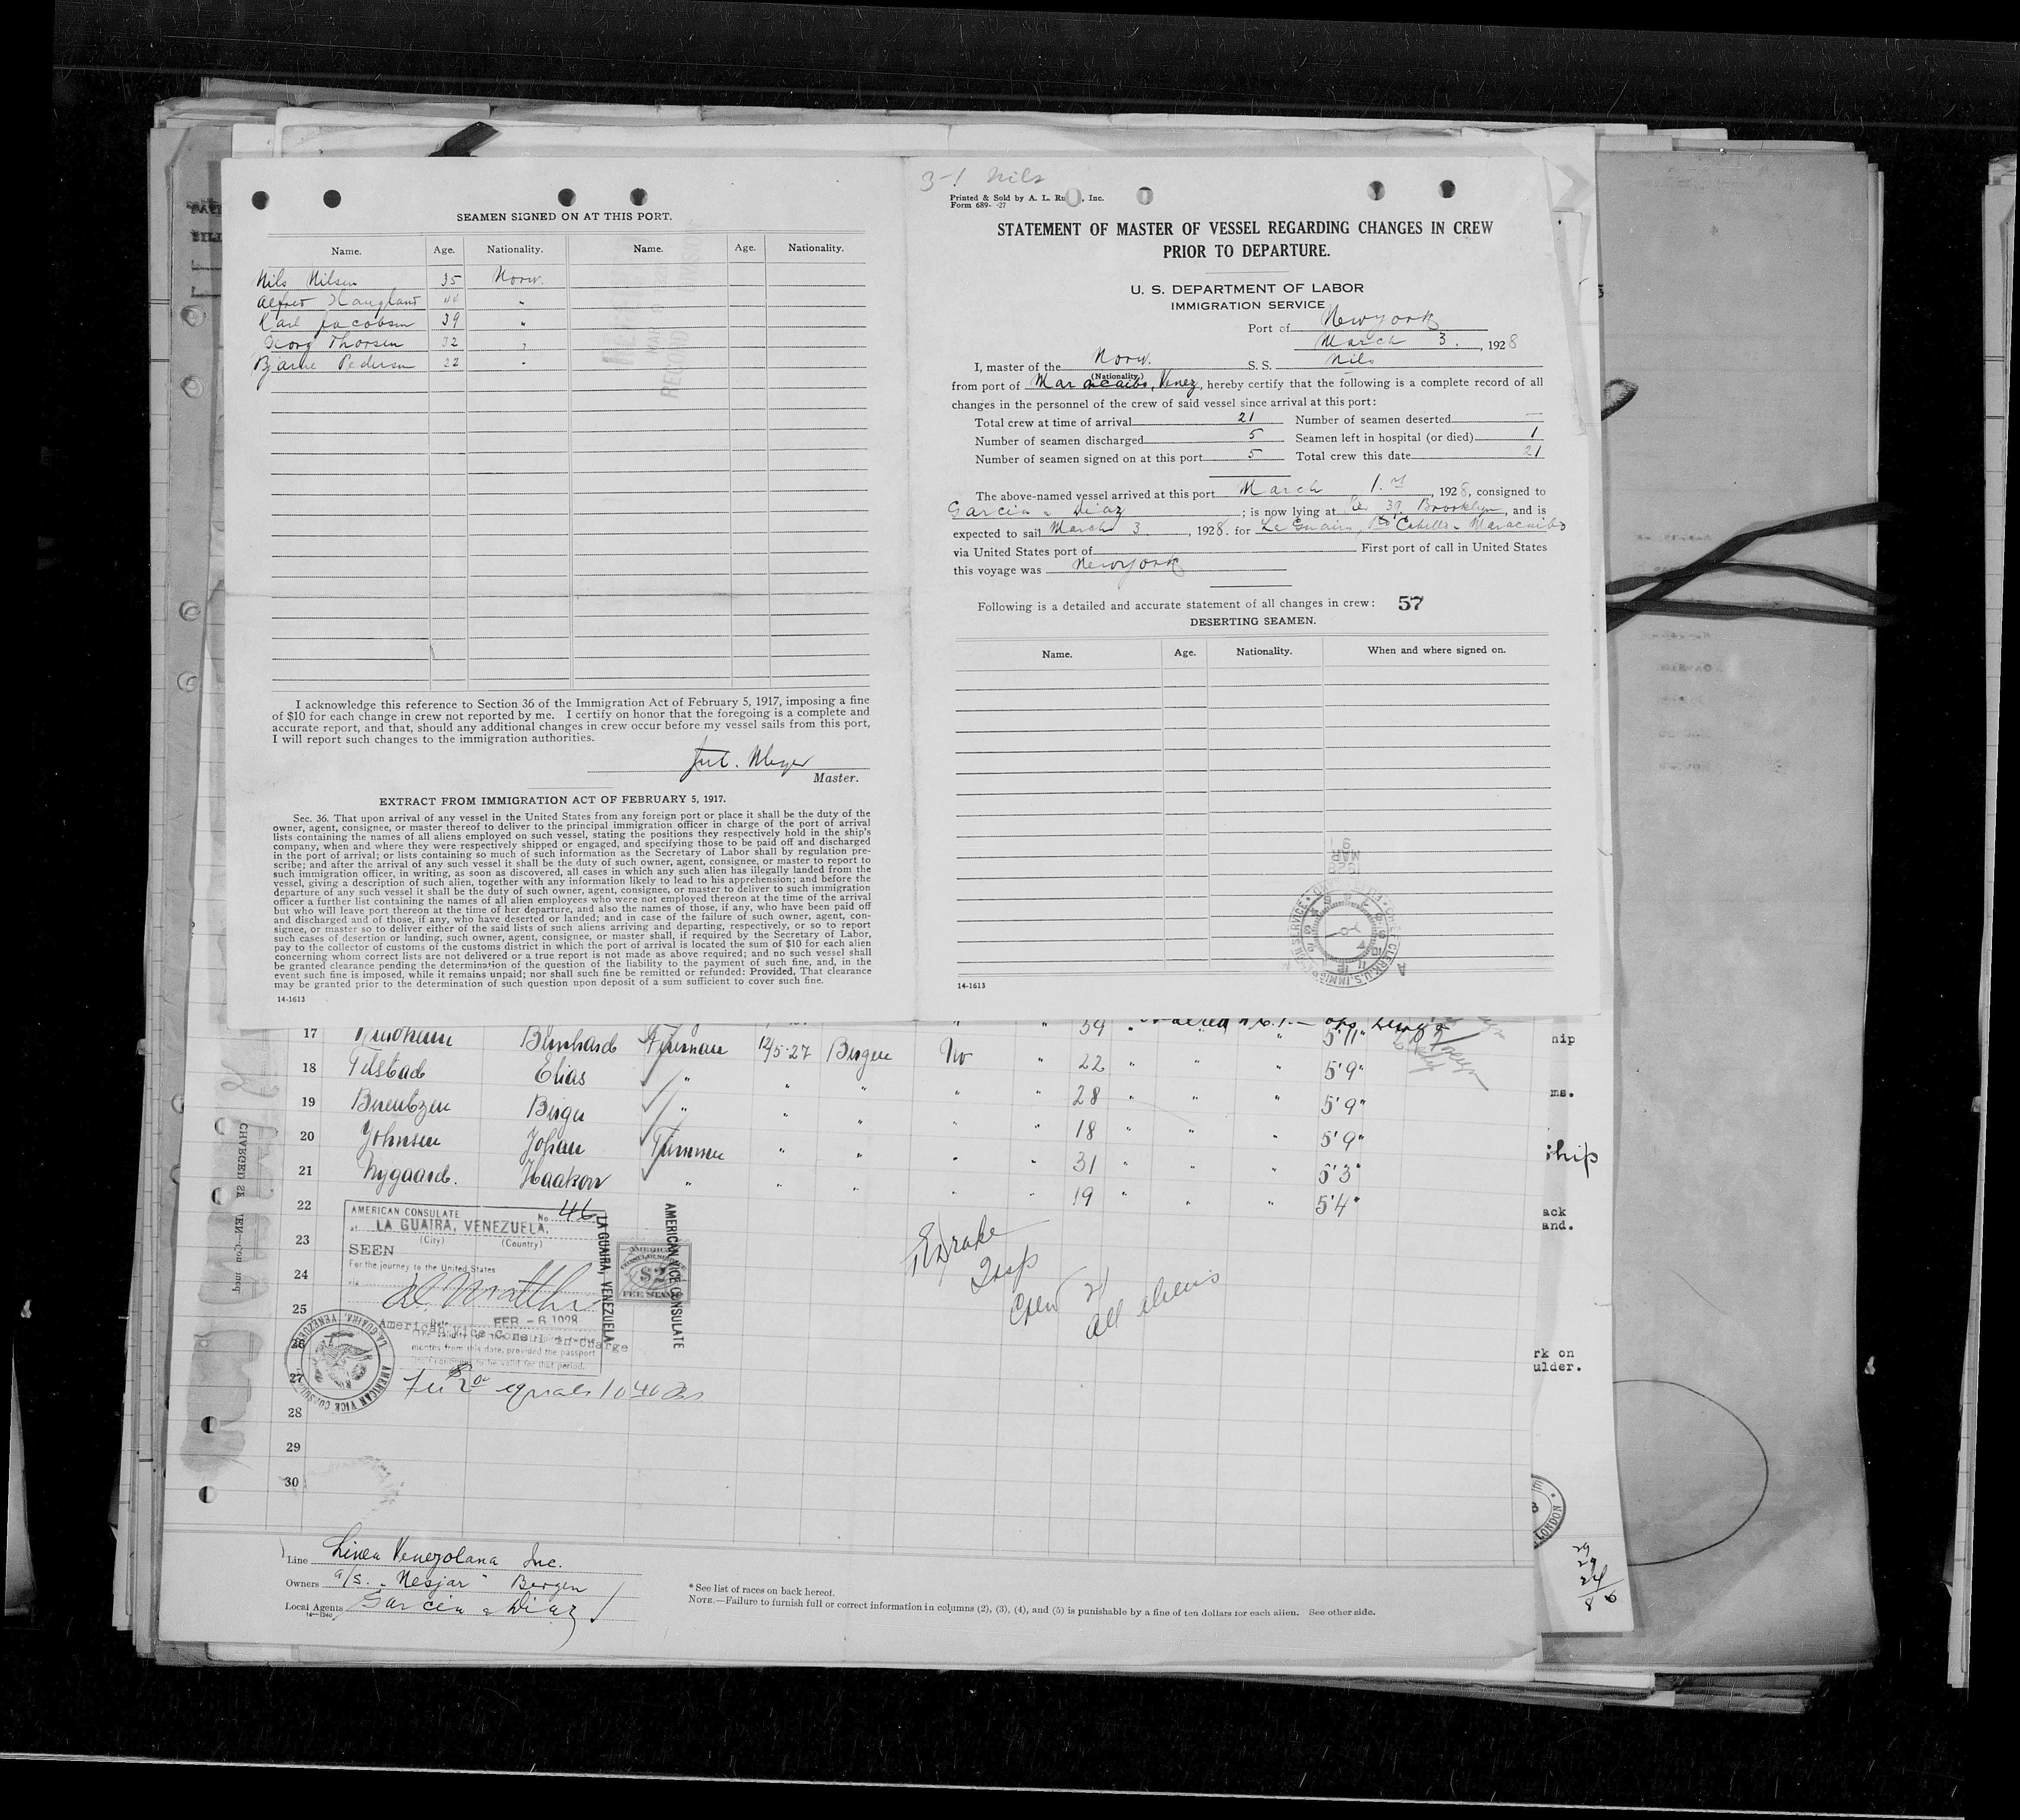 SEAMEN SIGNED ON AT THIS PORT.
Name. Age. Nationality. Name. Age. Nationality.
Nils Nilsen 35 Norw.
Alfred Haugland 44 "
Karl Jacobsen 39 "
Georg Thorsen 32 "
Bjarne Pedersen 22 "
I acknowledge this reference to Section 36 of the Immigration Act of February 5, 1917, imposing a fine
of $10 for each change in crew not reported by me. I certify on honor that the foregoing is a complete and
accurate report, and that, should any additional changes in crew occur before my vessel sails from this port,
I will report such changes to the immigration authorities.
Jul. Meyer
Master.
EXTRACT FROM IMMIGRATION ACT OF FEBRUARY 5, 1917.
Sec. 36. That upon arrival of any vessel in the United States from any foreign port or place it shall be the duty of the
owner, agent, consignee, or master thereof to deliver to the principal immigration officer in charge of the port of arrival
lists containing the names of all aliens employed on such vessel, stating the positions they respectively hold in the ship's
company, when and where they were respectively shipped or engaged, and specifying those to be paid off and discharged
in the port of arrival; or lists containing so much of such information as the Secretary of Labor shall by regulation pre-
scribe; and after the arrival of any such vessel it shall be the duty of such owner, agent, consignee, or master to report to
such immigration officer, in writing, as soon as discovered, all cases in which any such alien has illegally landed from the
vessel, giving a description of such alien, together with any information likely to lead to his apprehension; and before the
departure of any such vessel it shall be the duty of such owner, agent, consignee, or master to deliver to such immigration
officer a further list containing the names of all alien employees who were not employed thereon at the time of the arrival
but who will leave port thereon at the time of her departure, and also the names of those, if any, who have been paid off
and discharged and of those, if any, who have deserted or landed; and in case of the failure of such owner, agent, con-
signee, or master so to deliver either of the said lists of such aliens arriving and departing, respectively, or so to report
such cases of desertion or landing, such owner, agent, consignee, or master shall, if required by the Secretary of Labor,
pay to the collector of customs of the customs district in which the port of arrival is located the sum of $10 for each alien
concerning whom correct lists are not delivered or a true report is not made as above required; and no such vessel shall
be granted clearance pending the determination of the question of the liability to the payment of such fine, and, in the
event such fine is imposed, while it remains unpaid; nor shall such fine be remitted or refunded: Provided, That clearance
may be granted prior to the determination of such question upon deposit of a sum sufficient to cover such fine.
14-1613
3-1 Nils
Printed & Sold by A. L. Ru , Inc.
Form 689- -27
STATEMENT OF MASTER OF VESSEL REGARDING CHANGES IN CREW
PRIOR TO DEPARTURE.
U. S. DEPARTMENT OF LABOR
IMMIGRATION SERVICE
Port of New York
March 3. , 1928
I, master of the Norw. S. S. Nils
(Nationality.)
from port of Maracaibo, Venez, hereby certify that the following is a complete record of all
changes in the personnel of the crew of said vessel since arrival at this port:
Total crew at time of arrival 21 Number of seamen deserted —
Number of seamen discharged 5 Seamen left in hospital (or died) 1
Number of seamen signed on at this port 5 Total crew this date 21
The above-named vessel arrived at this port March 1.st , 1928, consigned to
Garcia & Diaz ; is now lying at Pier 39, Brooklyn, and is
expected to sail March 3. , 1928. for La Guaira, Pto Cabello - Maracaibo
via United States port of First port of call in United States
this voyage was New York
Following is a detailed and accurate statement of all changes in crew: 57
DESERTING SEAMEN.
Name. Age. Nationality. When and where signed on.
1928
MAR
14-1613
17 Bernhard Fireman 12/5-27 Bergen No " 39 " 5'11"
18 Elias " " " 22 " " " 5'9"
19 Berentzen Birger " " " " " 28 " " " 5'9"
20 Johnsen Johan Trimmer " " " " 18 " " " 5'9"
21 Nygaard. Haakon " " " " " 31 " " " 5'3"
22 19 " " " 5'4"
23
24
25
26
27
28
29
30
AMERICAN CONSULATE
No. 46
at LA GUAIRA, VENEZUELA.
(City) (Country)
SEEN
For the journey to the United States
via
FEB - 6 1928
American Vice Consul in Charge
months from this date, provided the passport
to be valid for that period.
LA GUAIRA, VENEZUELA
AMERICAN VICE CONSULATE
AMERICAN
$2
FEE STAMP
Fee $2.00 equals 10.40 Bs
Drake
Insp
Crew 21
all aliens
hip
ms.
ship
ack
and.
rk on
ulder.
LONDON
Line Linea Venezolana Inc.
Owners a/s. "Nesjar" Bergen
Local Agents Garcia & Diaz
*See list of races on back hereof.
NOTE.—Failure to furnish full or correct information in columns (2), (3), (4), and (5) is punishable by a fine of ten dollars for each alien. See other side.